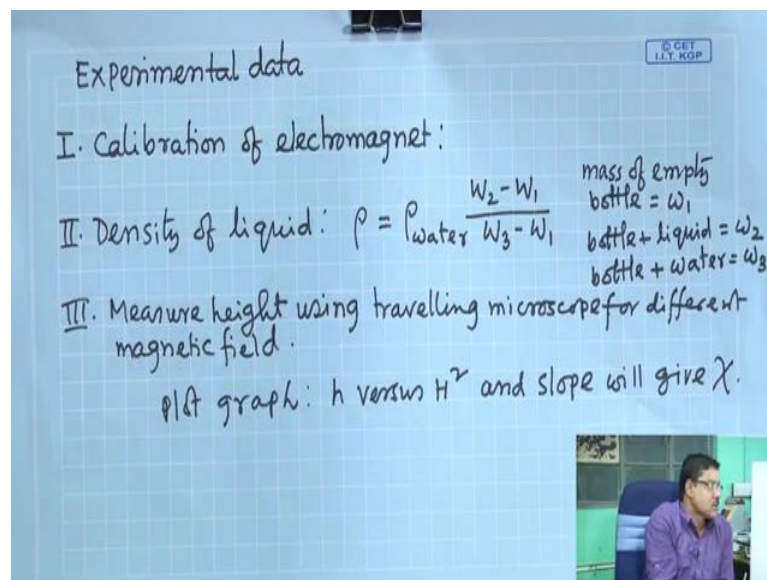 Experimental data
© CET
I.I.T. KGP
I. Calibration of electromagnet:
II. Density of liquid: ρ = ρwater (W2 - W1) / (W3 - W1)
mass of empty
bottle = ω1
bottle + liquid = ω2
bottle + water = ω3
III. Measure height using travelling microscope for different
magnetic field.
plot graph: h versus H² and slope will give χ.